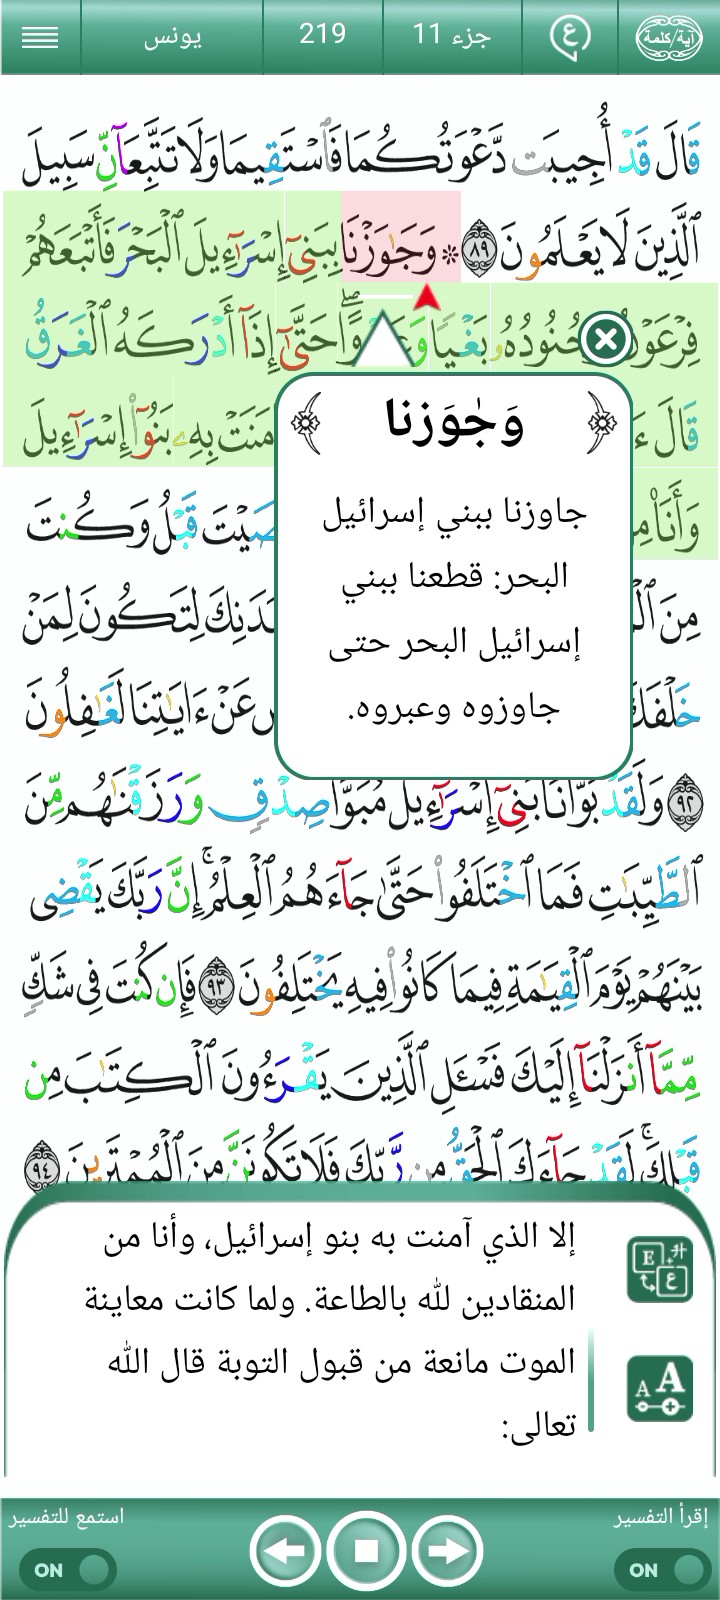 آية/كلمة ع جزء 11 219 يونس
قَالَ قَدْ أُجِيبَت دَّعْوَتُكُمَا فَٱسْتَقِيمَا وَلَا تَتَّبِعَآنِّ سَبِيلَ
ٱلَّذِينَ لَا يَعْلَمُونَ ٨٩ ۞ وَجَٰوَزْنَا بِبَنِىٓ إِسْرَٰٓءِيلَ ٱلْبَحْرَ فَأَتْبَعَهُمْ
فِرْعَوْنُ وَجُنُودُهُۥ بَغْيًا حَتَّىٰٓ إِذَآ أَدْرَكَهُ ٱلْغَرَقُ
قَالَ بِهِۦ بَنُوٓا۟ إِسْرَٰٓءِيلَ
وَأَنَا۠ قَبْلُ وَكُنتَ
مِنَ لِتَكُونَ لِمَنْ
عَنْ ءَايَٰتِنَا لَغَٰفِلُونَ
٩٢ وَلَقَدْ بَوَّأْنَا بَنِىٓ إِسْرَٰٓءِيلَ مُبَوَّأَ صِدْقٍ وَرَزَقْنَٰهُم مِّنَ
ٱلطَّيِّبَٰتِ فَمَا ٱخْتَلَفُوا۟ حَتَّىٰ جَآءَهُمُ ٱلْعِلْمُ ۚ إِنَّ رَبَّكَ يَقْضِى
بَيْنَهُمْ يَوْمَ ٱلْقِيَٰمَةِ فِيمَا كَانُوا۟ فِيهِ يَخْتَلِفُونَ ٩٣ فَإِن كُنتَ فِى شَكٍّ
مِّمَّآ أَنزَلْنَآ إِلَيْكَ فَسْـَٔلِ ٱلَّذِينَ يَقْرَءُونَ ٱلْكِتَٰبَ مِن
قَبْلِكَ ۚ لَقَدْ جَآءَكَ ٱلْحَقُّ مِن رَّبِّكَ فَلَا تَكُونَنَّ مِنَ ٱلْمُمْتَرِينَ ٩٤
وَجَٰوَزنا
جاوزنا ببني إسرائيل
البحر: قطعنا ببني
إسرائيل البحر حتى
جاوزوه وعبروه.
إلا الذي آمنت به بنو إسرائيل، وأنا من
المنقادين لله بالطاعة. ولما كانت معاينة
الموت مانعة من قبول التوبة قال الله
تعالى:
إقرأ التفسير استمع للتفسير
ON ON